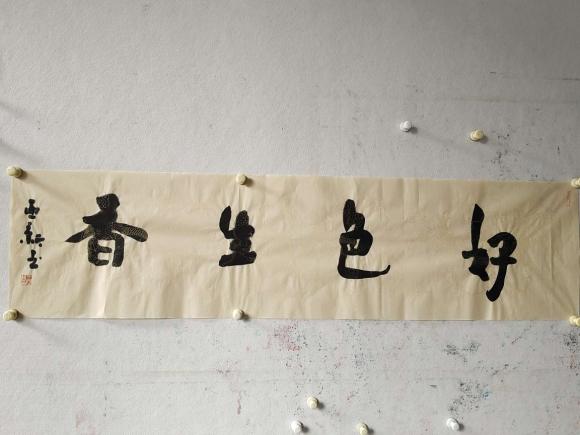 好色生香